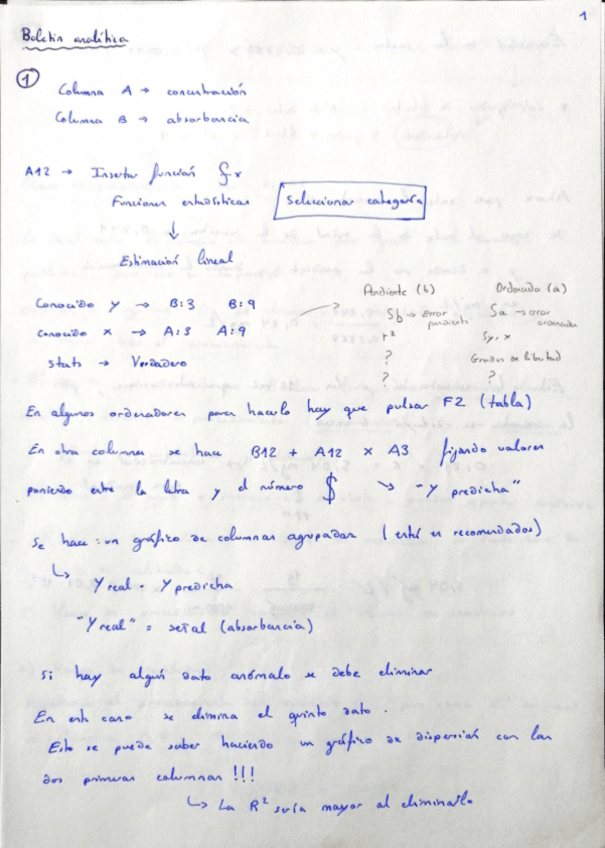 1
Boletín analítica
①
Columna A → concentración
Columna B → absorbancia
A12 → Insertar función fx
Funciones estadísticas
Seleccionar categoría
↓
Estimación lineal
Conocido y → B:3 B:9
conocido x → A:3 A:9
stats → Verdadero
Pendiente (b) Ordenada (a)
Sb → Error pendiente Sa → error ordenada
r² Sy,x
? Grados de libertad
? ?
En algunos ordenadores para hacerlo hay que pulsar F2 (tabla)
En otra columna se hace B12 + A12 × A3 fijando valores
poniendo entre la letra y el número $ → "Y predicha"
Se hace: un gráfico de columnas agrupadas (está en recomendados)
↳ Y real - Y predicha
"Y real" = señal (absorbancia)
Si hay algún dato anómalo se debe eliminar
En este caso se elimina el quinto dato.
Esto se puede saber haciendo un gráfico de dispersión con las
dos primeras columnas !!!
↳ La R² sería mayor al eliminarlo